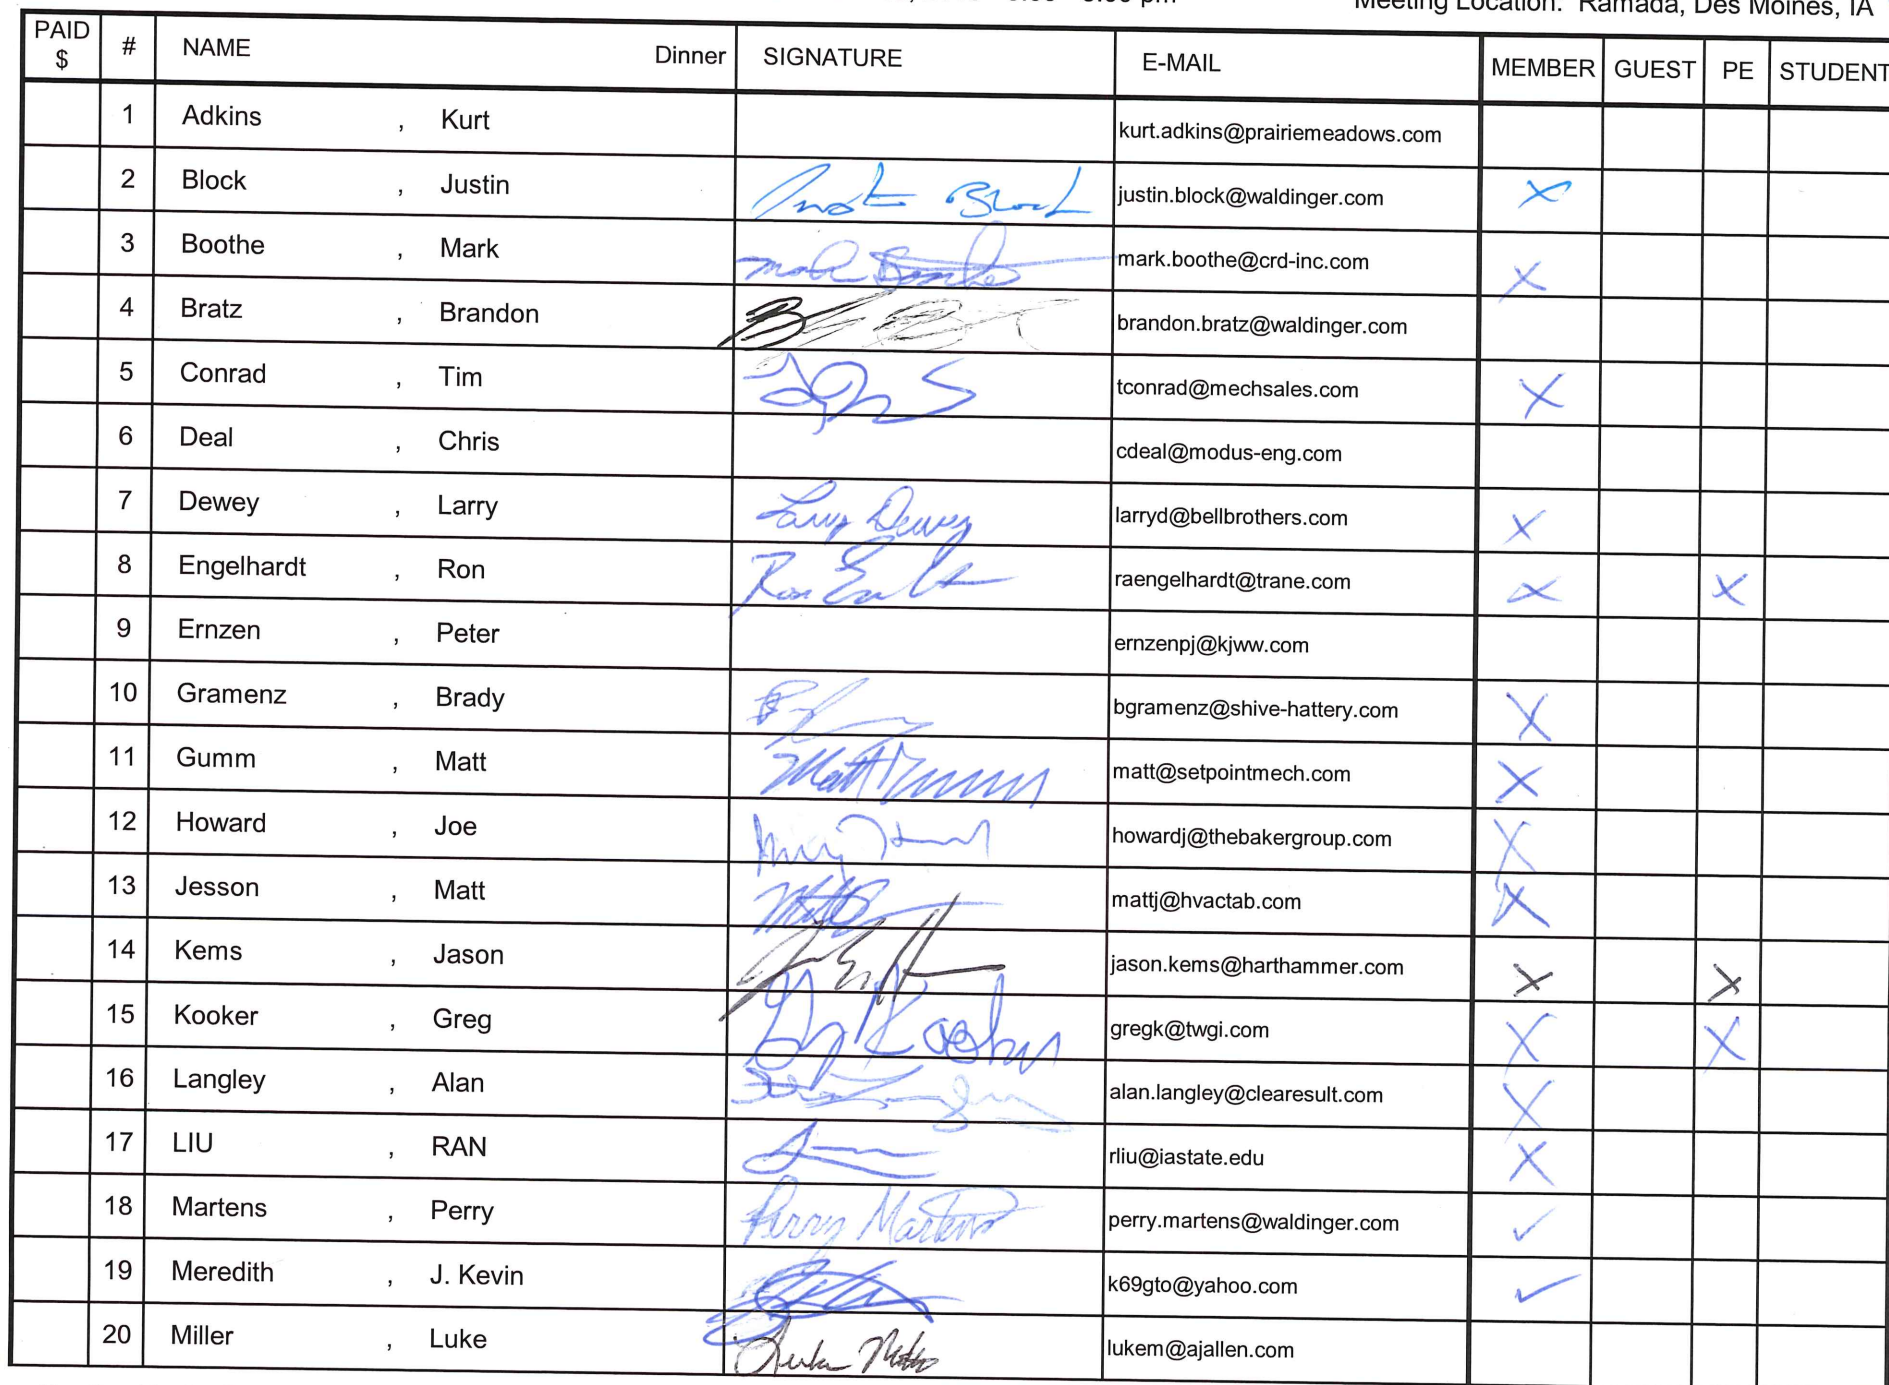 Meeting Location: Ramada, Des Moines, IA
PAID $ # NAME Dinner SIGNATURE E-MAIL MEMBER GUEST PE STUDENT
1 Adkins , Kurt kurt.adkins@prairiemeadows.com
2 Block , Justin Justin Block justin.block@waldinger.com X
3 Boothe , Mark Mark Boothe mark.boothe@crd-inc.com X
4 Bratz , Brandon brandon.bratz@waldinger.com
5 Conrad , Tim tconrad@mechsales.com X
6 Deal , Chris cdeal@modus-eng.com
7 Dewey , Larry Larry Dewey larryd@bellbrothers.com X
8 Engelhardt , Ron Ron raengelhardt@trane.com X X
9 Ernzen , Peter ernzenpj@kjww.com
10 Gramenz , Brady bgramenz@shive-hattery.com X
11 Gumm , Matt Matt Gumm matt@setpointmech.com X
12 Howard , Joe howardj@thebakergroup.com X
13 Jesson , Matt mattj@hvactab.com X
14 Kems , Jason jason.kems@harthammer.com X X
15 Kooker , Greg Greg Kooker gregk@twgi.com X X
16 Langley , Alan alan.langley@clearesult.com X
17 LIU , RAN rliu@iastate.edu X
18 Martens , Perry Perry Martens perry.martens@waldinger.com ✓
19 Meredith , J. Kevin k69gto@yahoo.com ✓
20 Miller , Luke Luke Miller lukem@ajallen.com